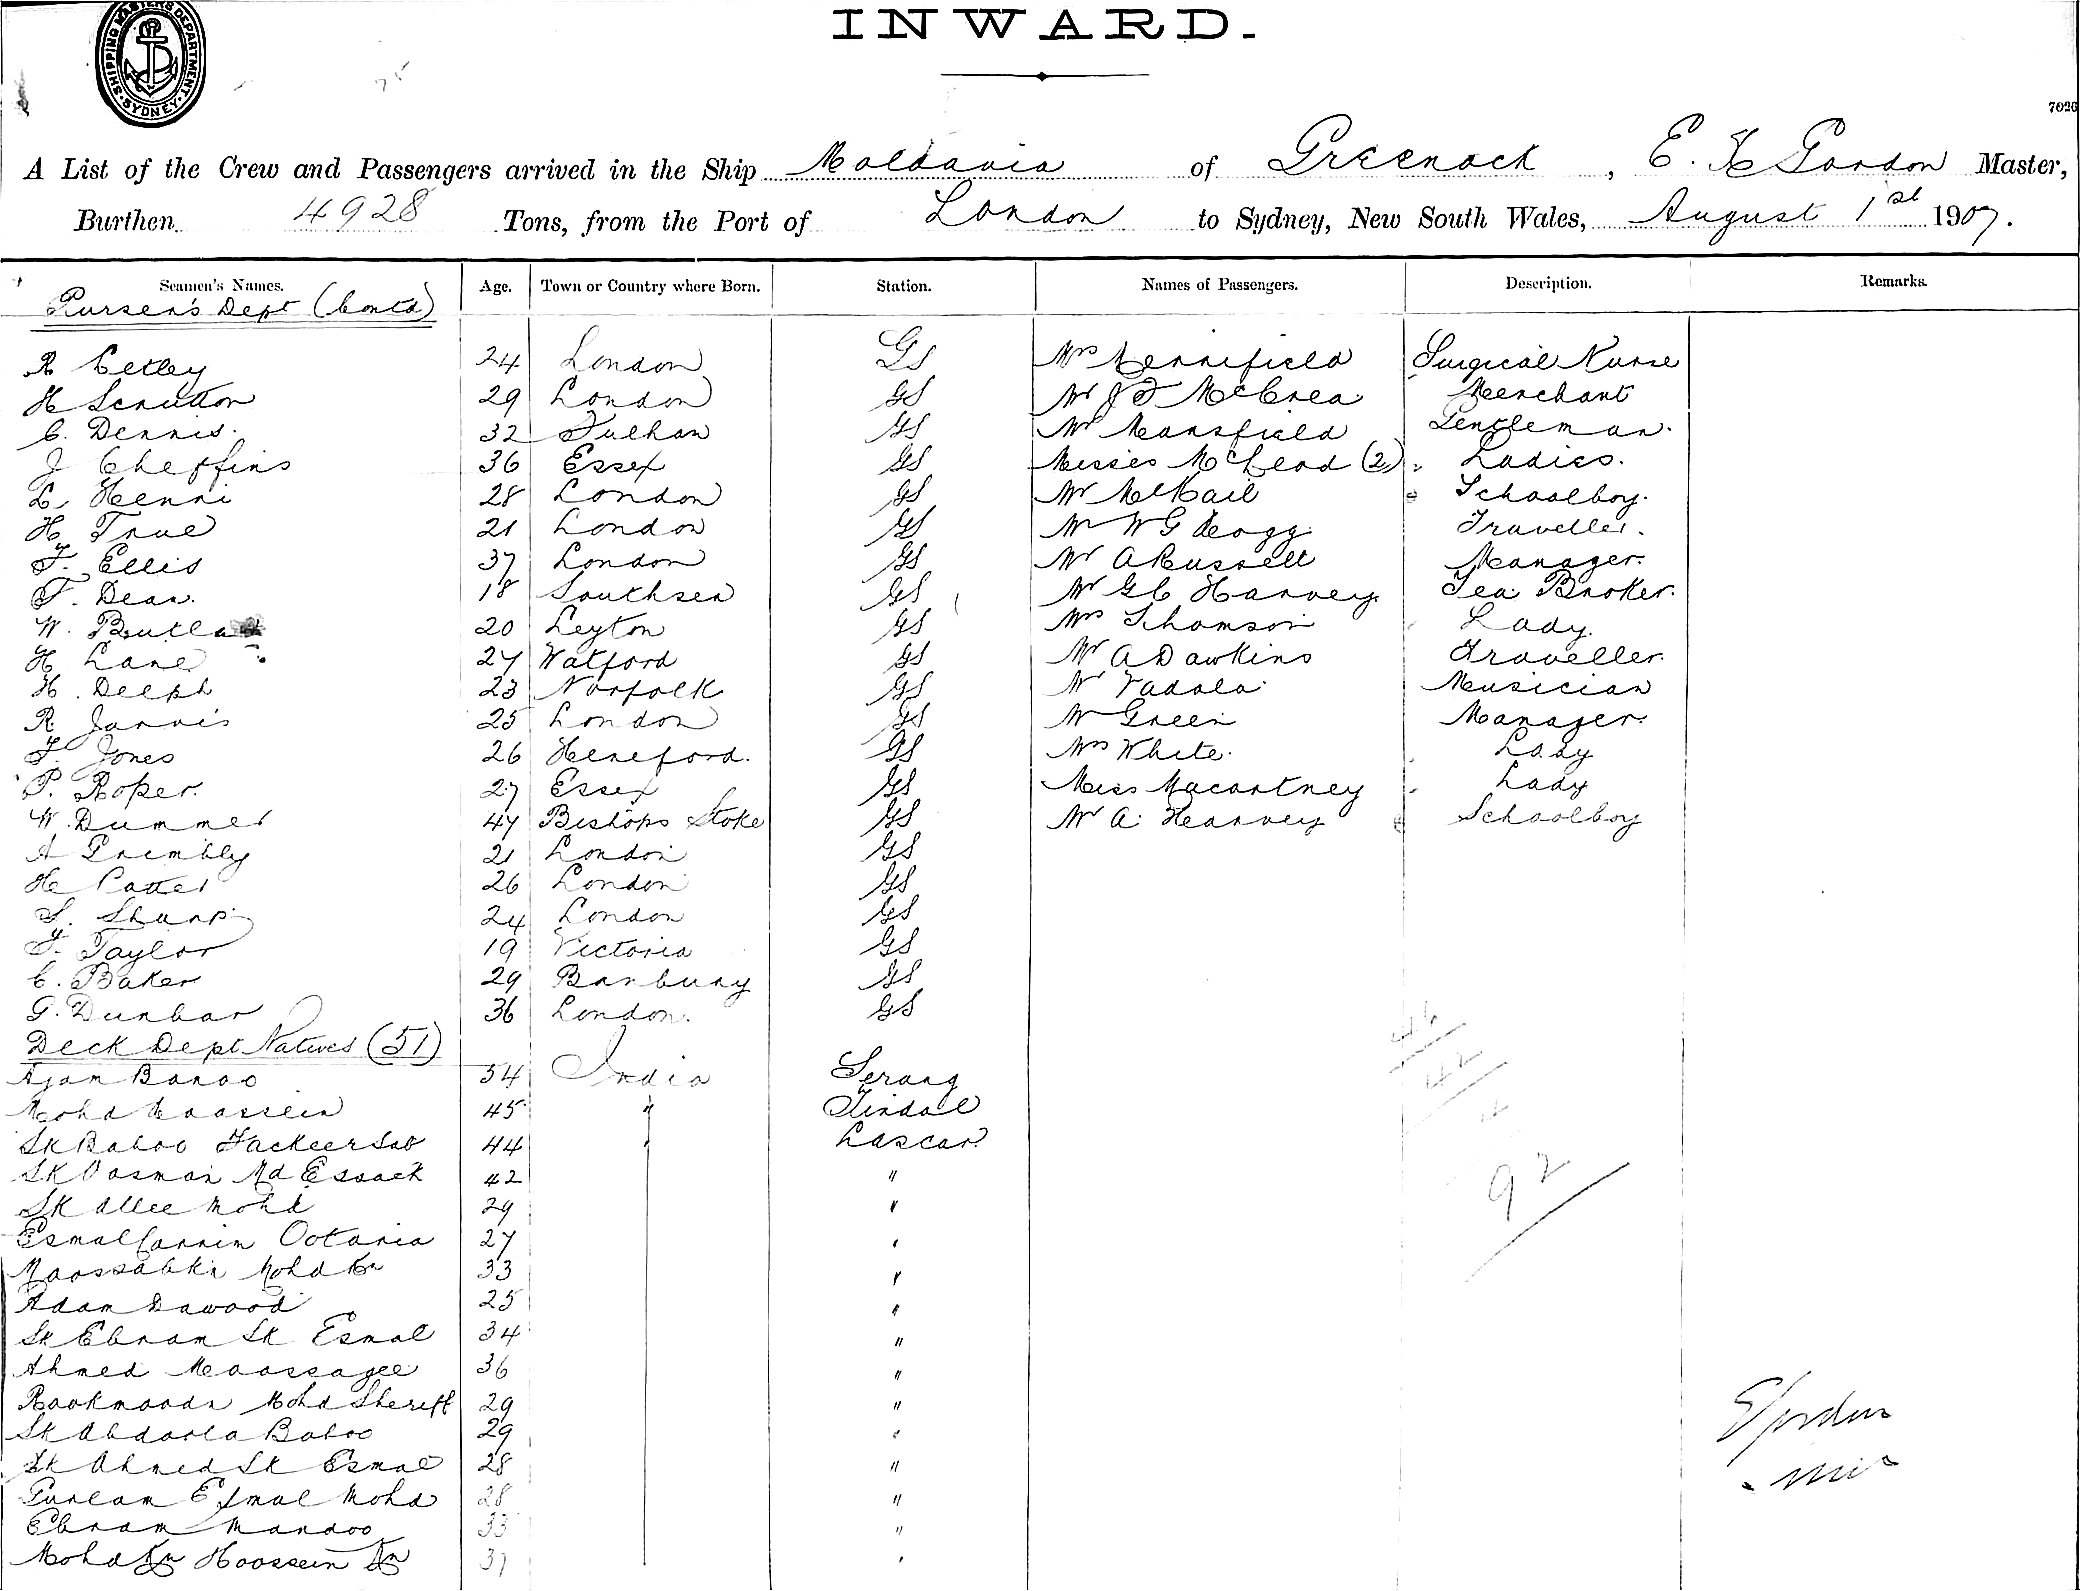 INWARD.
SHIPPING MASTER'S DEPARTMENT. SYDNEY
7020
A List of the Crew and Passengers arrived in the Ship Moldavia of Greenock, E. Gordon Master,
Burthen 4928 Tons, from the Port of London to Sydney, New South Wales, August 1st 1907.
Seamen's Names. Age. Town or Country where Born. Station. Names of Passengers. Description. Remarks.
Purser's Dept (Contd)
R Cetley 24 London GS Mrs Merrifield Surgical Nurse
H Scrutton 29 London GS Mr J F McCrea Merchant
C. Dennis. 32 Fulham GS Mr Mansfield Gentleman.
J Cheffins 36 Essex GS Misses McLeod (2) Ladies.
L Henri 28 London GS Mr McKail Schoolboy.
H True 21 London GS Mr W G Hogg Traveller.
F. Ellis 37 London GS Mr A Russell Manager.
F. Dean. 18 Southsea GS Mr G C Harvey. Tea Broker.
W. 20 Leyton GS Mrs Thomson Lady.
H Lane 27 Watford GS Mr A Dawkins Traveller.
H. Delph 23 Norfolk GS Mr Vadala Musician
R. Jarvis 25 London GS Mr Green Manager.
F. Jones 26 Hereford. GS Mrs White. Lady
P. Roper. 27 Essex GS Miss Macartney Lady
W. Dummer 47 Bishops Stoke GS Mr A. Hearvey Schoolboy
A Trembly 21 London GS
H Potter 26 London GS
S. Sharp 24 London GS
F. Taylor 19 Victoria GS
C. Baker 29 Banbury GS
G. Dunbar 36 London. GS
Deck Dept Natives (51)
Ajam Banoo 54 India Serang
Mohd Hoossein 45 " Tindal
Sk Baboo Fackeer Sab 44 " Lascar
Sk Oosman Md Essack 42 "
Sk Allee Mohd 29 "
Esmal Carrim Octaria 27 "
Mohd 33 "
Adam Dawood 25 "
Sk Ebram Sk Esmal 34 "
Ahmed Moossagee 36 "
Rookmoodn Mohd Sheriff 29 "
Sk Abdoola Baboo 29 "
Sk Ahmed Sk Esmal 28 "
Gunlam Esmal Mohd 28 "
Ebram Mandoo 33 "
Mohd Kn Hoossein Kn 37 "
92
E Gordon